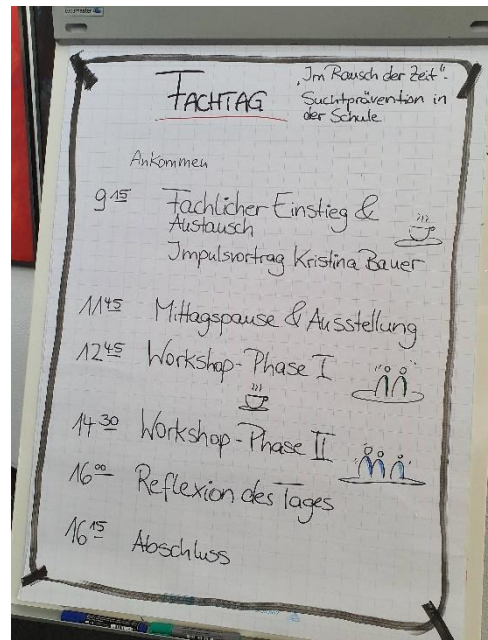 FACHTAG
„Im Rausch der Zeit“-
Suchtprävention in
der Schule
Ankommen
9 15 Fachlicher Einstieg &
Austausch
Impulsvortrag Kristina Bauer
11 45 Mittagspause & Ausstellung
12 45 Workshop-Phase I
14 30 Workshop-Phase II
16 00 Reflexion des Tages
16 15 Abschluss